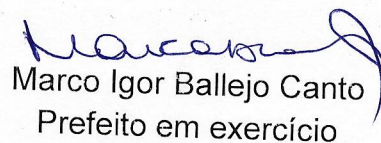 Marco Igor Ballejo Canto
Prefeito em exercício